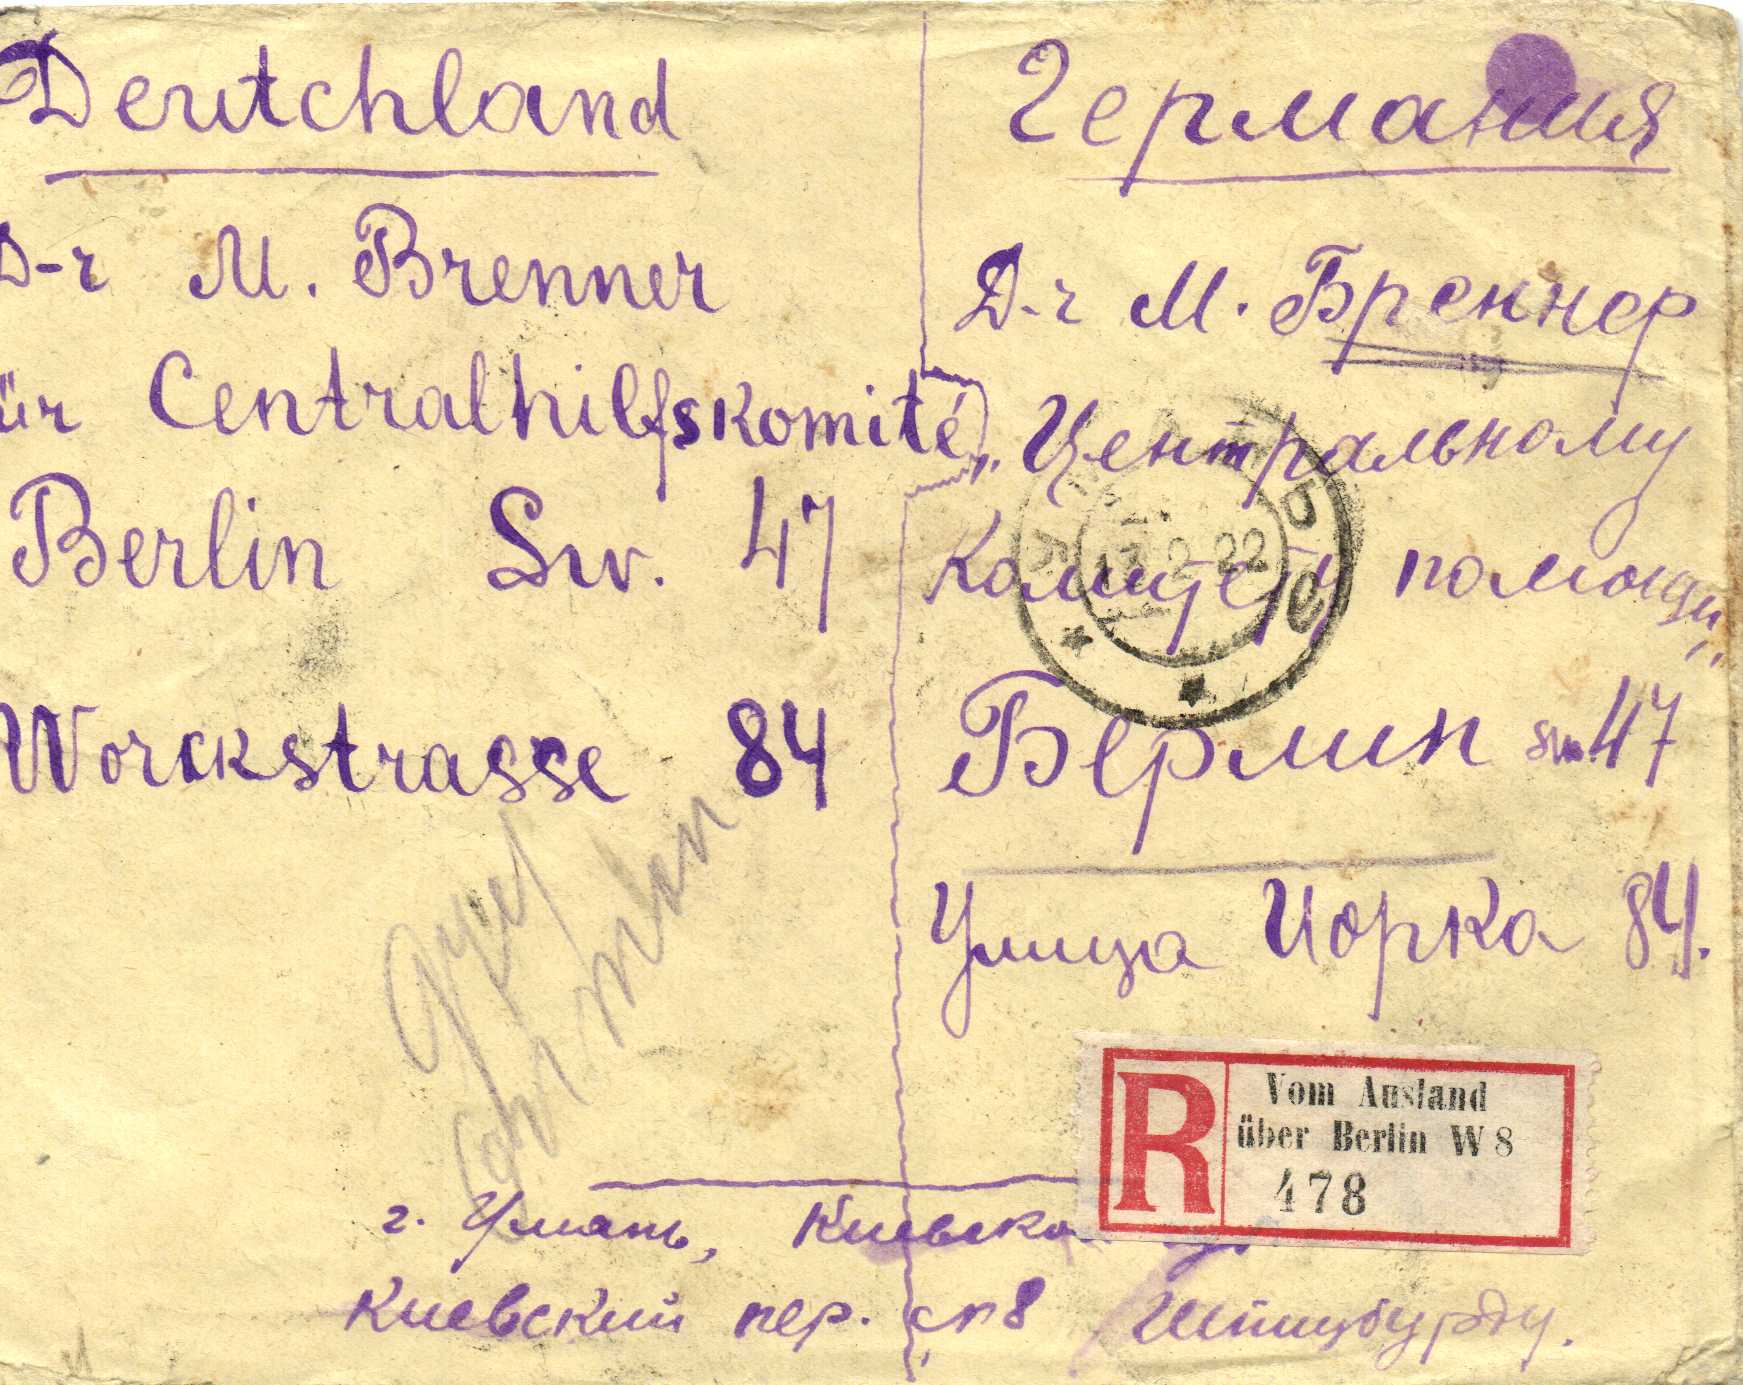 Deutchland
D-r M. Brenner
für Centralhilfskomité
Berlin Sw. 47
Worckstrasse 84
Германия
Д-r М. Бреннер
„Центральному
Комитету помощи"
Берлин sw. 47
Улица Иорка 84.
2 22
R
Vom Ausland
über Berlin W 8
478
г. Умань, Киевской
Киевский пер. 8 Шпицбурду.